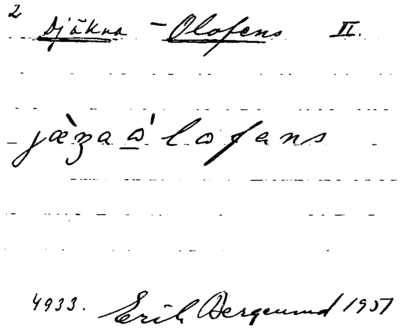 2 Djäkna - Olofens II.
jàʒa ò̲ lofans
4933. Erik Berglund 1937